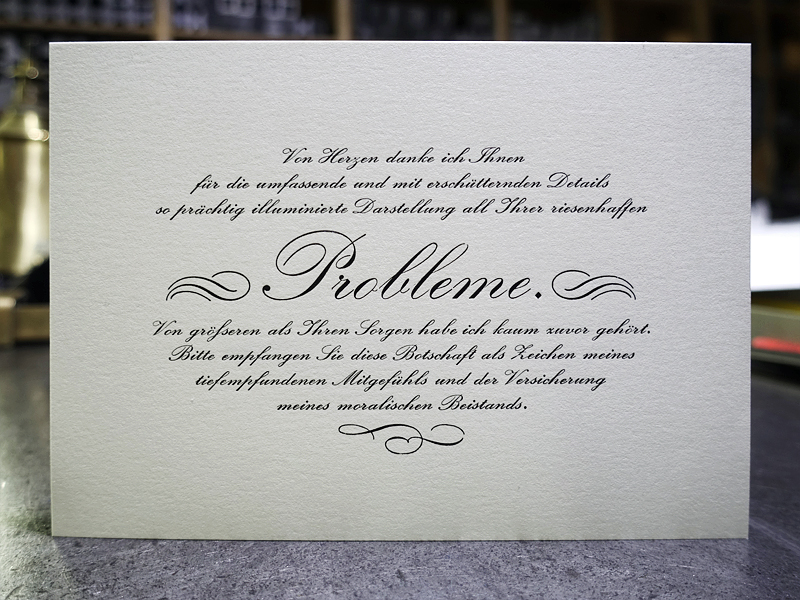 Von Herzen danke ich Ihnen
für die umfassende und mit erschütternden Details
so prächtig illuminierte Darstellung all Ihrer riesenhaften
Probleme.
Von größeren als Ihren Sorgen habe ich kaum zuvor gehört.
Bitte empfangen Sie diese Botschaft als Zeichen meines
tiefempfundenen Mitgefühls und der Versicherung
meines moralischen Beistands.